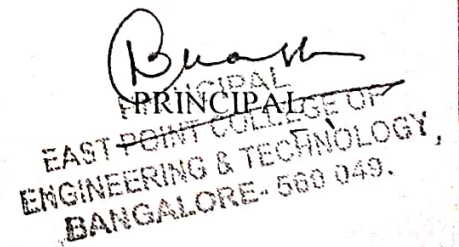 PRINCIPAL
PRINCIPAL
EAST POINT COLLEGE OF
ENGINEERING & TECHNOLOGY,
BANGALORE- 560 049.